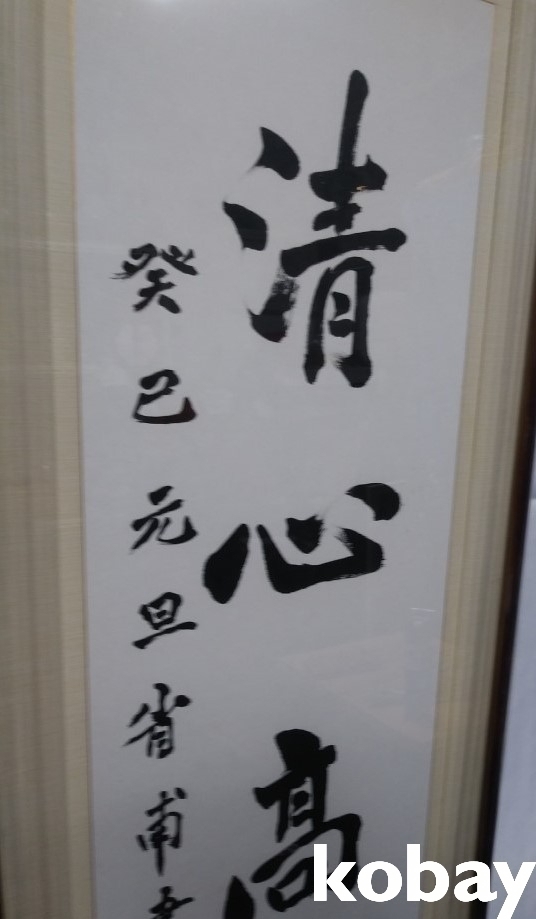 清心高
癸巳元旦省甫
kobay